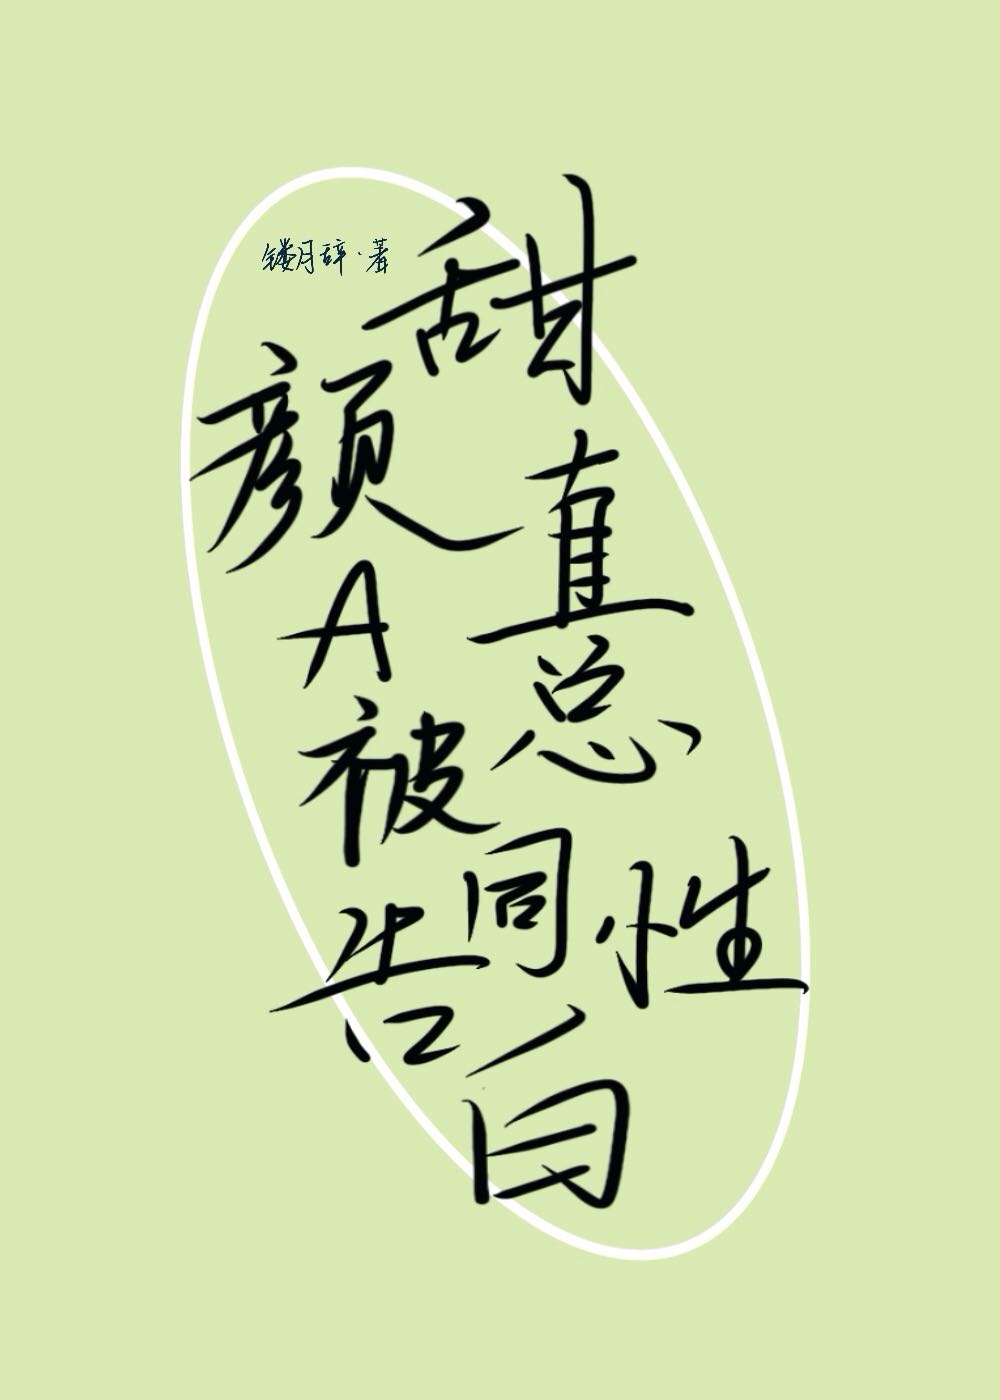 镂月辞·著
甜颜直A总被同性告白